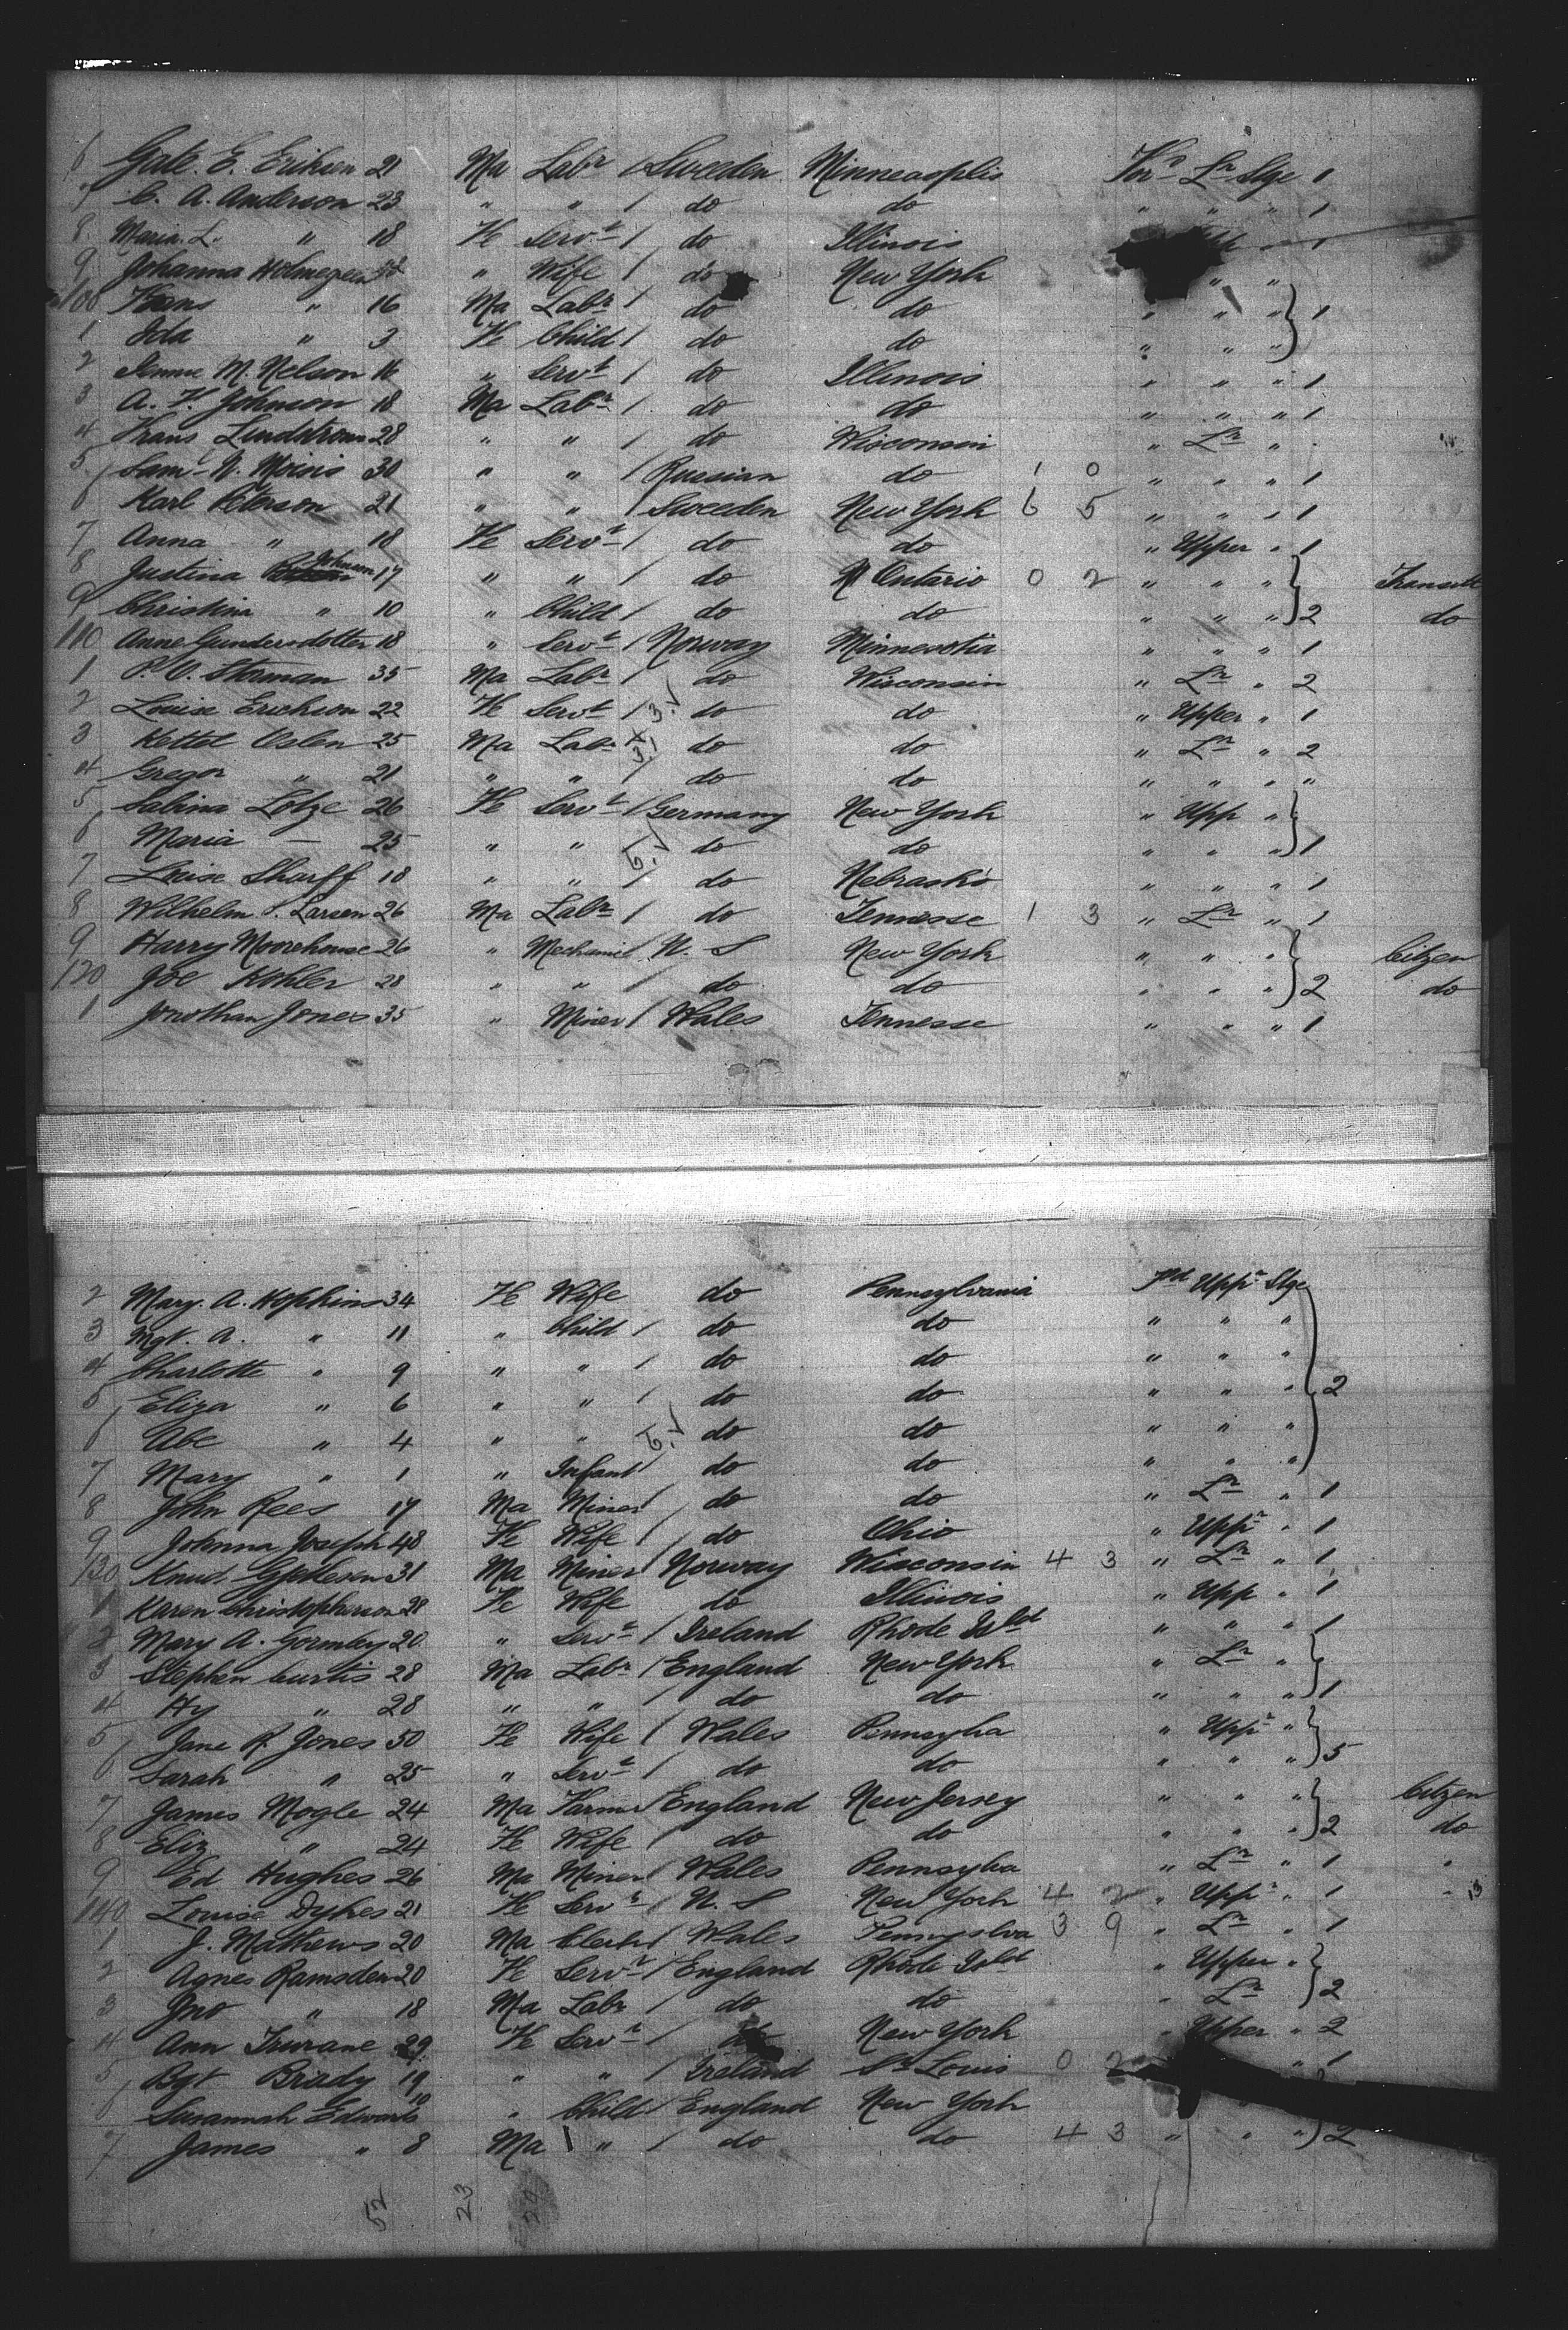 6 Gate. E. Eriksen 21 Ma Labr / Sweeden Minneasplis For'd Lr Stge 1
7 C. A. Anderson 23 " " / do do " " " 1
8 Maria. L. " 18 Fe Servt / do Illinois 1
9 Johanna Holmegren " Wife / do New York " "
100 Hans " 16 Ma Labr / do do " " " 1
1 Ida " 3 Fe Child / do do " " "
2 Jennie M. Nelson 16 " Servt / do Illinois " " " 1
3 A. F. Johnson 18 Ma Labr / do do " " " 1
4 Frans Lindstrom 28 " " / do Wisconsin " Lr "
5 Saml N. Moisis 30 " " / Russian do 1 0 " " " 1
6 Karl Peterson 21 " " / Sweeden New York 6 5 " " " 1
7 Anna " 18 Fe Servt / do do " Upper " 1
8 Justina Johnson 17 " " / do Ontario 0 2 " " " Transit
9 Christina " 10 " Child / do do " " " 2 do
110 Anne Gundersdotter 18 " Servt / Norway Minnesotia " " " 1
1 P. O. Storman 35 Ma Labr / do Wisconsin " Lr " 2
2 Louise Erickson 22 Fe Servt / do do " Upper " 1
3 Kettol Oslen 25 Ma Labr do do " Lr " 2
4 Gregor " 21 " " / do do " " " "
5 Sabina Lotze 26 Fe Servt / Germany New York " Upp "
6 Maria — 25 " " do do " " " 1
7 Louise Sharff 18 " " / do Nebraska " " " 1
8 Wilhelm S. Larsen 26 Ma Labr / do Tennesse 1 3 " Lr " 1
9 Harry Moorehouse 26 " Mechanic / U. S New York " " " Citzen
120 Joe Kohler 28 " " / do do " " " 2 do
1 Jonothan Jones 35 " Miner / Wales Tennesse " " " 1
2 Mary. A. Hopkins 34 Fe Wife do Pennsylvania Fod Uppr Stge
3 Mgt. A. " 11 " Child / do do " " "
4 Charlotte " 9 " " / do do " " "
5 Eliza " 6 " " / do do " " " 2
6 Abe " 4 " " do do " " "
7 Mary " 1 " Infant do do " " "
8 John Rees 17 Ma Miner / do do " Lr " 1
9 Johanna Joseph 48 Fe Wife / do Ohio " Uppr " 1
130 Knud. 31 Ma Miner Norway Wisconsin 4 3 " Lr " 1
1 Karen Christopherson 28 Fe Wife do Illinois " Upp " 1
2 Mary A. Gormley 20 " Servt / Ireland Rhode Isld " " " 1
3 Stephen Curtis 28 Ma Labr / England New York " Lr "
4 Hy " 28 " " / do do " " " 1
5 Jane R Jones 50 Fe Wife / Wales Pennsylva " Uppr "
6 Sarah " 25 " Servt / do do " " " 5
7 James Mogle 24 Ma Farmer / England New Jersey " " " Citzen
8 Eliz " 24 Fe Wife / do do " " " 2 do
9 Ed Hughes 26 Ma Miner / Wales Pennsylva " Lr " 1
140 Louise Dykes 21 Fe Servt / U. S New York 4 2 " Uppr " 1
1 J. Mathews 20 Ma Clerk / Wales Pennyslva 3 9 " Lr " 1
2 Agnes Ramsden 20 Fe Servt / England Rhode Isld " Upper "
3 Jno " 18 Ma Labr / do do " Lr " 2
4 Ann Trurane 29 Fe Servt / do New York " Upper " 2
5 Bgt Brady 19 " " / Ireland St Louis 0 2 " 1
6 Susannah Edwards 10 " Child / England New York
7 James " 8 Ma " / do do 4 3 " " " 2
52 23 29